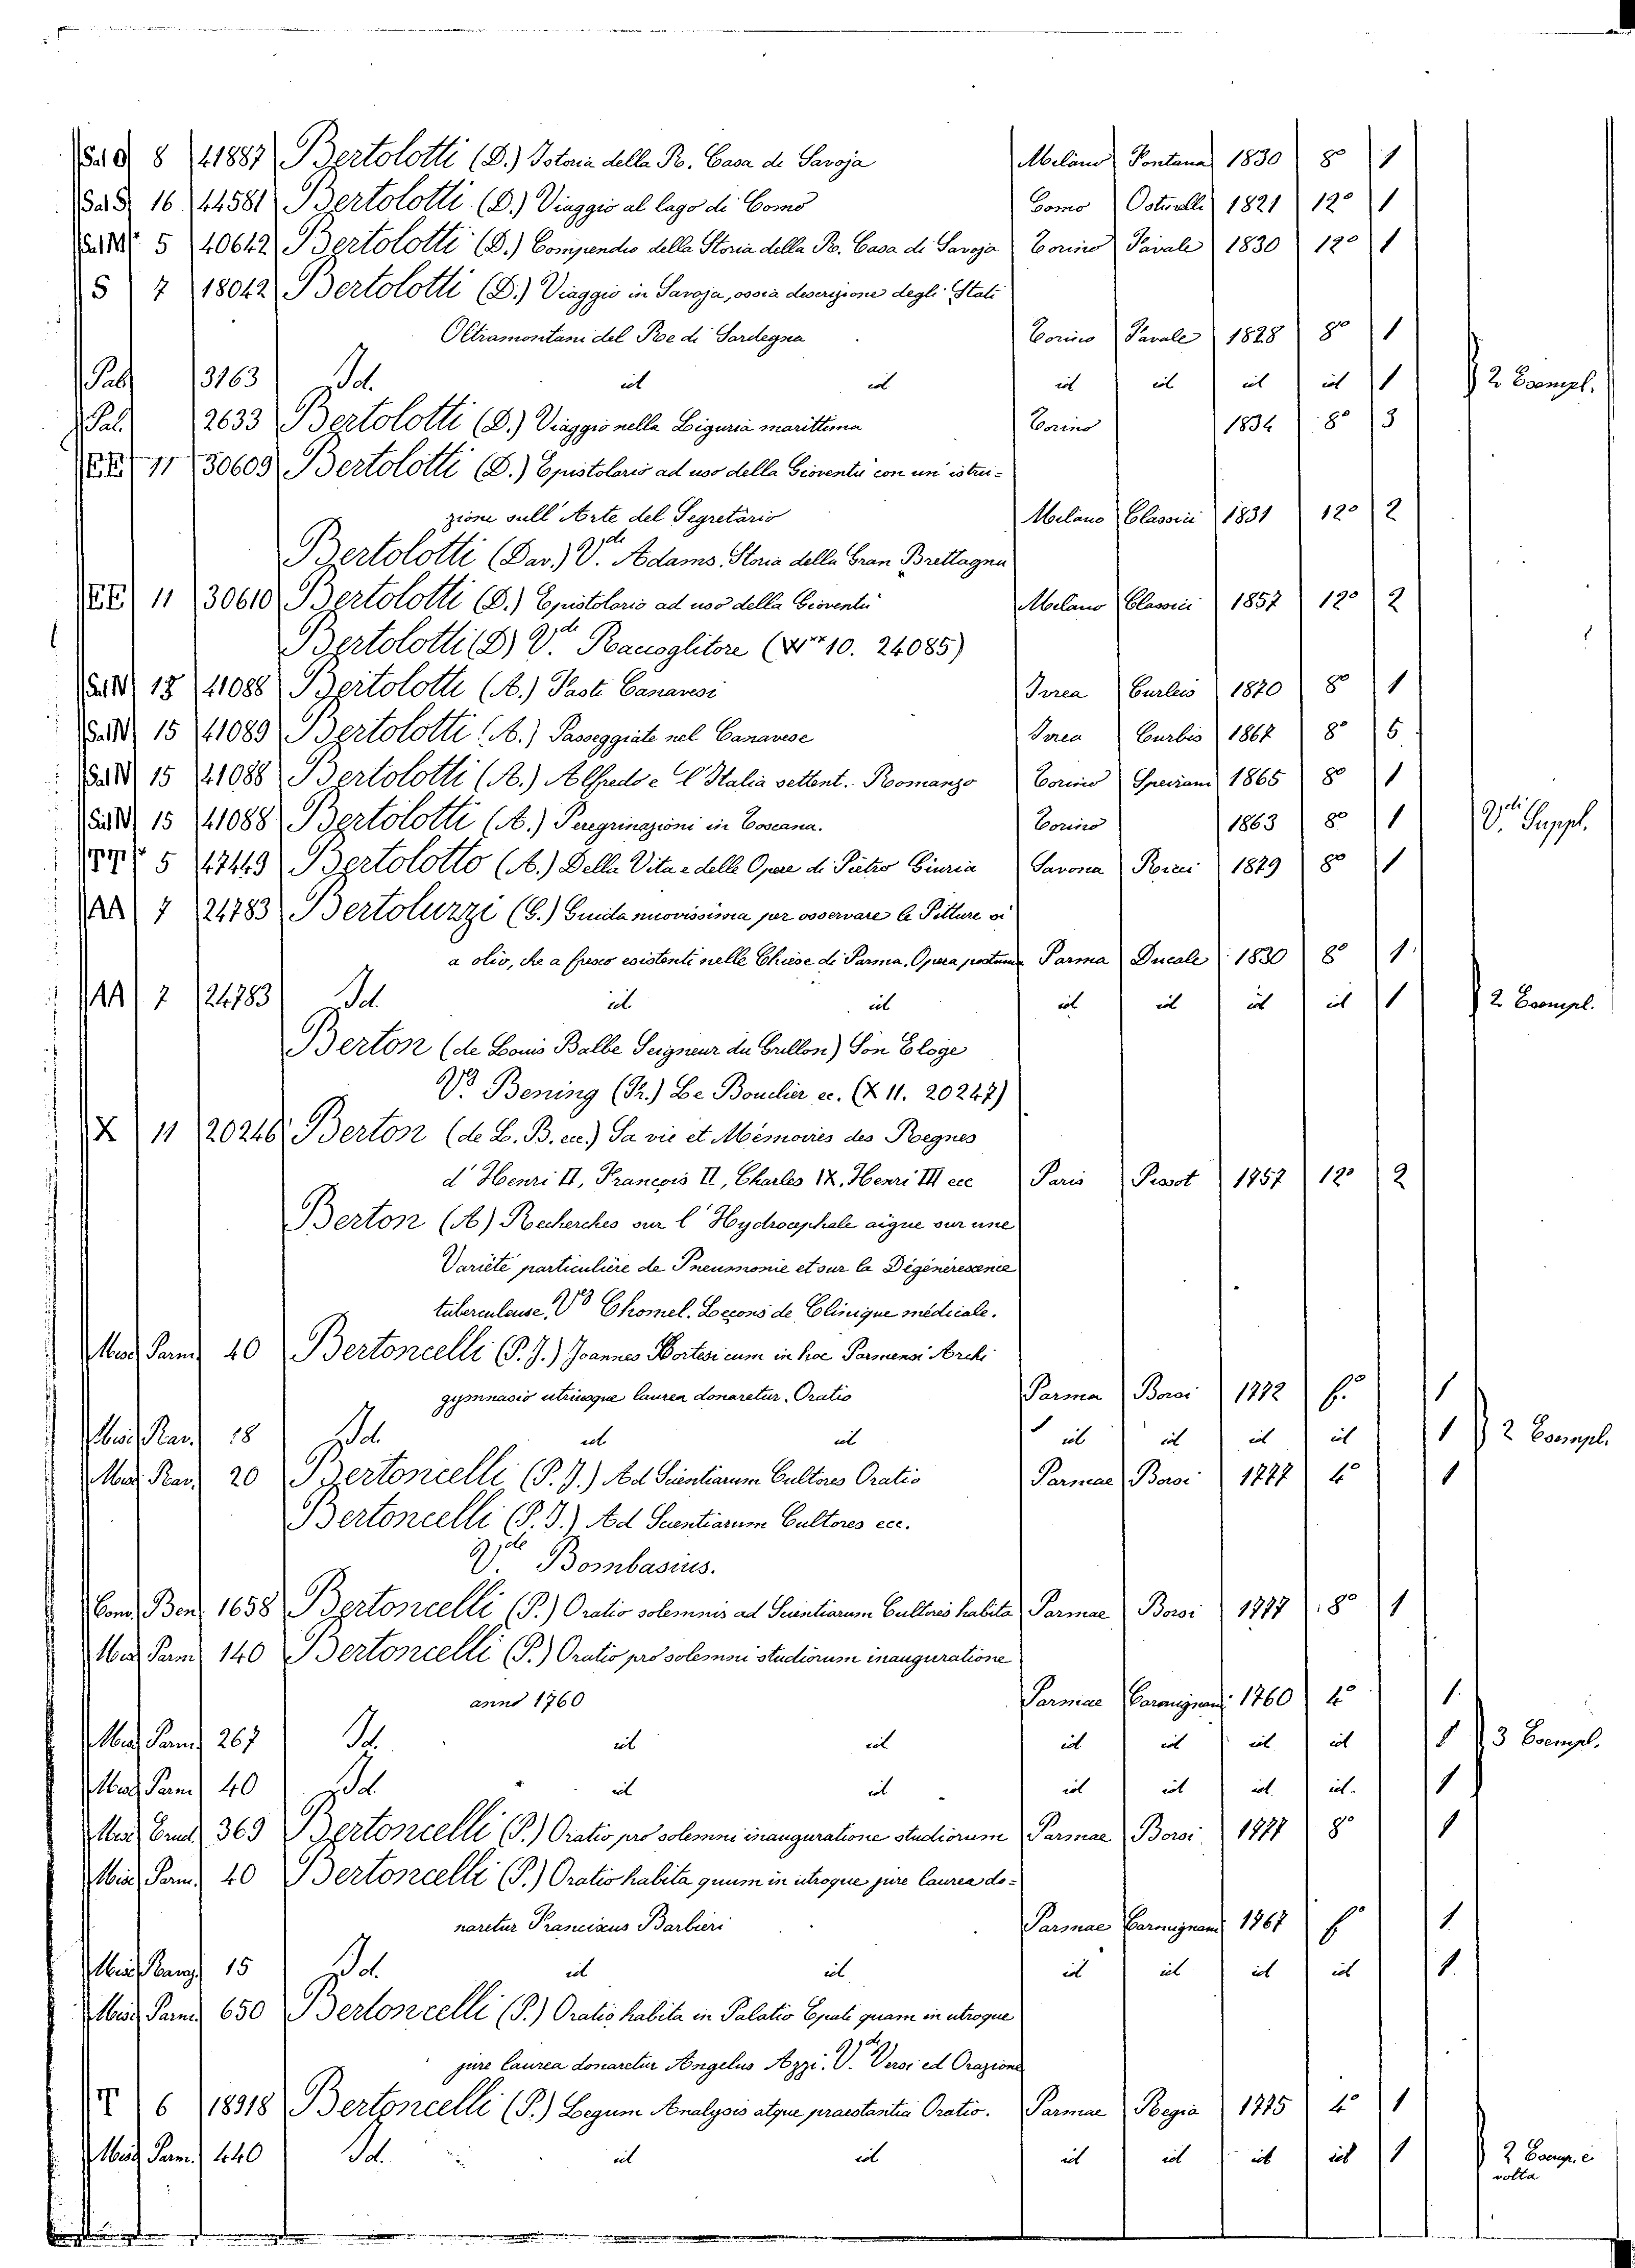 Sal Q 8 41887 Bertolotti (D.) Istoria della R. Casa di Savoja Milano Fontana 1830 8° 1
Sal S 16 44581 Bertolotti (D.) Viaggio al lago di Como Como Ostinelli 1821 12° 1
Sal M 5 40642 Bertolotti (D.) Compendio della Storia della R. Casa di Savoja Torino Favale 1830 12° 1
S 7 18042 Bertolotti (D.) Viaggio in Savoja, ossia descrizione degli Stati
Oltramontani del Re di Sardegna Torino Favale 1828 8° 1
Pal. 3163 Id. id id id id id id 1 2 Esempl.
Pal. 2633 Bertolotti (D.) Viaggio nella Liguria marittima Torino 1834 8° 3
EE 11 30609 Bertolotti (D.) Epistolario ad uso della Gioventù con un' istru-
zione sull' Arte del Segretario Milano Classici 1831 12° 2
Bertolotti (Dav.) V.de Adams. Storia della Gran Brettagna
EE 11 30610 Bertolotti (D.) Epistolario ad uso della Gioventù Milano Classici 1857 12° 2
Bertolotti (D) V.de Raccoglitore ( 10. 24085)
Sal N 15 41088 Bertolotti (A.) Fasti Canavesi Ivrea Curbis 1870 8° 1
Sal N 15 41089 Bertolotti (A.) Passeggiate nel Canavese Ivrea Curbis 1867 8° 5
Sal N 15 41088 Bertolotti (A.) Alfredo e l' Italia settent. Romanzo Torino Speirani 1865 8° 1
Sal N 15 41088 Bertolotti (A.) Peregrinazioni in Toscana. Torino 1863 8° 1 V.di Suppl.
5 47449 Bertolotto (A.) Della Vita e delle Opere di Pietro Giuria Savona Ricci 1879 8° 1
AA 7 24783 Bertoluzzi (G.) Guida nuovissima per osservare le Pitture sì
a olio, che a fresco esistenti nelle Chiese di Parma. Opera postuma Parma Ducale 1830 8° 1
AA 7 24783 Id. id. id id id id id 1 2 Esempl.
Berton (de Louis Balbe Seigneur du Crillon) Son Eloge
V.e Bening (R.) Le Bouclier ec. (X 11. 20247)
X 11 20246 Berton (de L. B. ec.) Sa vie et Mémoires des Regnes
d' Henri II, François II, Charles IX, Henri III ecc Paris Pissot 1757 12° 2
Berton (A) Recherches sur l' Hydrocephale aigue sur une
Varieté particulière de Pneumonie et sur la Dégénérescence
tuberculeuse, V.e Chomel. Leçons de Clinique médicale.
Misc. Parm. 40 Bertoncelli (P. J.) Joannes Cortesi cum in hoc Parmensi Archi
gymnasio utriusque laurea donaretur. Oratio Parma Borsi 1772 f.° 1
Misc. Rav. 18 Id. id id id id id id 1 2 Esempl.
Misc. Rav. 20 Bertoncelli (P. J.) Ad Scientiarum Cultores Oratio Parmae Borsi 1777 4° 1
Bertoncelli (P. J.) Ad Scientiarum Cultores ecc.
V.de Bombasius.
Com. Ben. 1658 Bertoncelli (P.) Oratio solemnis ad Scientiarum Cultores habita Parmae Borsi 1777 8° 1
Misc. Parm. 140 Bertoncelli (P.) Oratio pro solemni studiorum inauguratione
anno 1760 Parmae Carmignani 1760 4° 1
Misc. Parm. 267 Id. id id id id id id 1 3 Esempl.
Misc. Parm. 40 Id. id id id id id id. 1
Misc. Erud. 369 Bertoncelli (P.) Oratio pro solemni inauguratione studiorum Parmae Borsi 1777 8° 1
Misc. Parm. 40 Bertoncelli (P.) Oratio habita quum in utroque jure laurea do-
naretur Franciscus Barbieri Parmae Carmignani 1767 f° 1
Misc. 15 Id. id id id id id id 1
Misc. Parm. 650 Bertoncelli (P.) Oratio habita in Palatio Epali quam in utroque
jure laurea donaretur Angelus Azzi. V.de Versi ed Orazione
T 6 18918 Bertoncelli (P.) Legum Analysis atque praestantia Oratio. Parmae Regia 1775 4° 1
Misc. Parm. 440 Id. id id id id id id 1 2 Esemp. e
volta